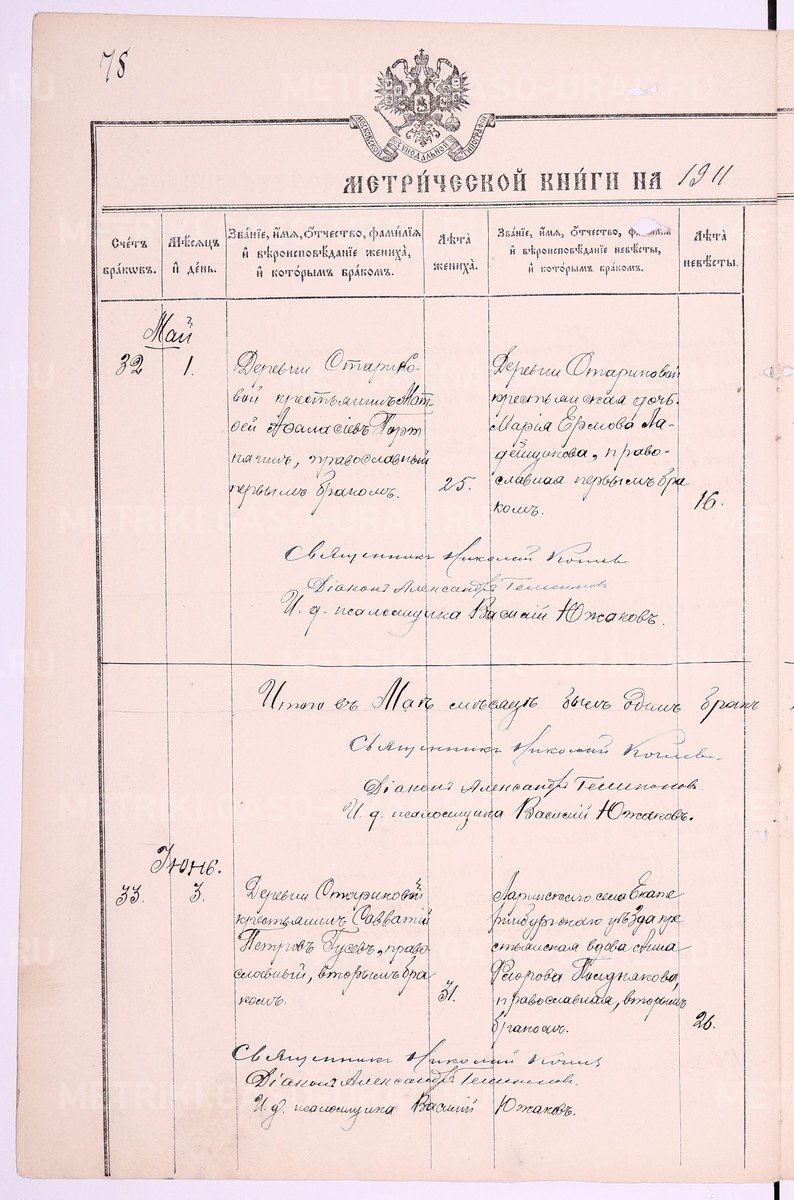 78
МОСКОВСКОЙ СУНОДАЛЬНОЙ ТИПОГРАФІИ
МЕТРИ́ЧЕСКОЙ КНИ́ГИ НА 1911
Сче́тъ бра́ковъ.
Мѣ́сяцъ и́ де́нь.
Зва́нїе, и́мя, ѻ́тчество, фами́лїя и́ вѣроисповѣ́данїе жениха̀, и́ кото́рымъ бра́комъ.
Лѣ́та жениха̀.
Зва́нїе, и́мя, ѻ́тчество, фами́лїя и́ вѣроисповѣ́данїе невѣ́сты, и́ кото́рымъ бра́комъ.
Лѣ́та невѣ́сты.
Май
32
1.
Деревни Старико-
вой крестьянинъ Мат-
ѳей Аѳанасіевъ Порт
нягинъ, православный
первымъ бракомъ.
25.
Деревни Стариковой
крестьянская дочь
Марія Ермова Ла-
, право-
славная первымъ бра
комъ.
16.
Священникъ Николай
Діаконъ Александръ
И. д. псаломщика Василій Южаковъ.
Итого въ Маѣ мѣсяцѣ былъ одинъ бракъ
Священникъ Николай
Діаконъ Александръ
И. д. псаломщика Василій Южаковъ.
Іюнь.
33.
3.
Деревни Стариковой
крестьянинъ Савватій
Петровъ Гусевъ, право-
славный, вторымъ бра
комъ.
31.
села Екате
ринбургскаго уѣзда кре
стьянская вдова Анна
Ѳеодорова Позднякова,
православная, вторымъ
бракомъ.
26.
Священникъ Николай
Діаконъ Александръ
И. д. псаломщика Василій Южаковъ.